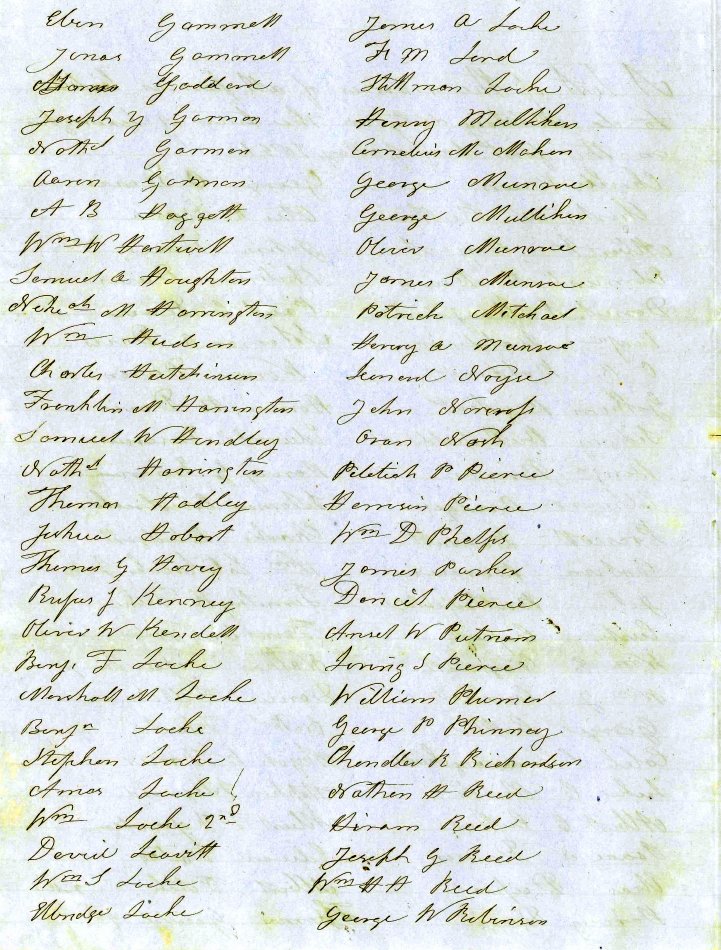 Eben Gammell
Jonas Gammell
Goddard
Joseph Y Garmon
Nathl Garmon
Aaron Garmon
A B Haggett
Wm W Hartwell
Samuel A Houghton
Nehemh M Harrington
Wm Hudson
Charles Hutchinson
Franklin M Harrington
Samuel W Hindley
Nathl Harrington
Thomas Hadley
Joshua Hobart
Thomas G Hovey
Rufus J Kenney
Oliver W Kendall
Benj. F Locke
Marshall M Locke
Benjn Locke
Stephen Locke
Amos Locke
Wm Locke 2nd
David Leavitt
Wm S Locke
Elbridge Locke
James A Locke
F M Lord
Stillman Locke
Henry Mulliken
Cornelius Mc Mahon
George Munroe
George Mulliken
Oliver Munroe
James S Munroe
Patrick Mitchael
Henry A Munroe
Leonard Noyse
John Norcross
Oran Nash
Peletiah P Pierce
Harrisin Pierce
Wm D Phelps
James Parker
Daniel Pierce
Ansel W Putnam
Loring S Pierce
William Plumer
George P Phinney
Chandler R Richardson
Nathan H Reed
Hiram Reed
Joseph G Reed
Wm H H Reed
George W Robinson